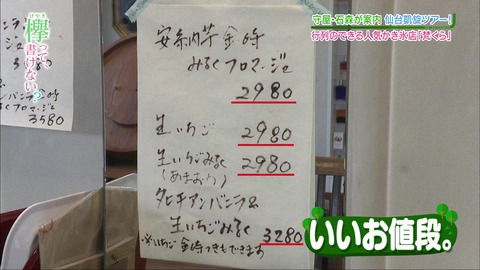 欅って、書けない?
けやき
守屋・石森が案内 仙台凱旋ツアー!
行列のできる人気かき氷店「梵くら」
安納芋金時
みるくフロマージュ
2980
生いちご 2980
生いちごみるく 2980
(あまおう)
タヒチアンバニラ&
生いちごみるく 3280
※いちご金時つきもできます
るくフロマージュ
3580
いいお値段。